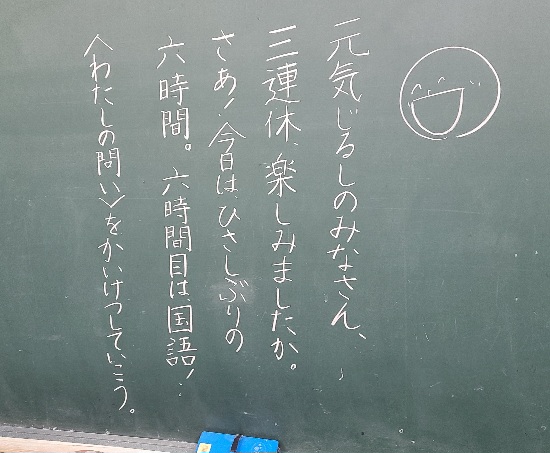 元気じるしのみなさん、
三連休、楽しみましたか。
さあ!今日は、ひさしぶりの
六時間。六時間目は国語!
〈わたしの問い〉をかいけつしていこう。